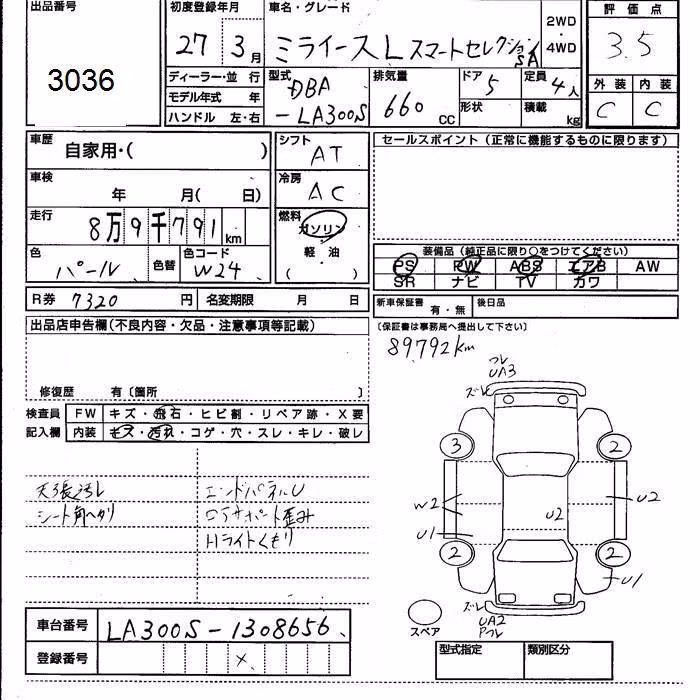 出品番号
3036
初度登録年月
27 3月
車名・グレード
ミライース L スマートセレクション SA
2WD
・
4WD
評価点
3.5
ディーラー・並 行
モデル年式 年
ハンドル 左・右
型式
DBA
-LA300S
排気量
660 CC
ドア
5
形状
定員
4人
積載
kg
外装 内装
C C
車歴
自家用・( )
シフト
AT
セールスポイント (正常に機能するものに限ります)
車検
年 月( 日)
冷房
AC
走行
8万9千791km
燃料
ガソリン
軽油
( )
色
パール
色替
色コード
W24
装備品 (純正品に限り○をつけてください)
PS PW ABS エアB AW
SR ナビ TV カワ
R券 7320 円
名変期限 月 日
新車保証書 有・無
後日品
(保証書は事務局へ提出して下さい)
出品店申告欄(不良内容・欠品・注意事項等記載)
89792km
修復歴 有〔箇所 〕
検査員
記入欄
FW キズ・飛石・ヒビ割・リペア跡・X要
内装 キズ・汚れ・コゲ・穴・スレ・キレ・破レ
天張汚レ
シート角ヘタリ
エンドパネルU
コアサポート歪み
Hライトくもり
フレ
UA3
ズレ
3 2
W2 U2 U2
U1
2 2
U1
ズレ
UA2
スペア
車台番号
LA300S-1308656
登録番号
×
型式指定 類別区分